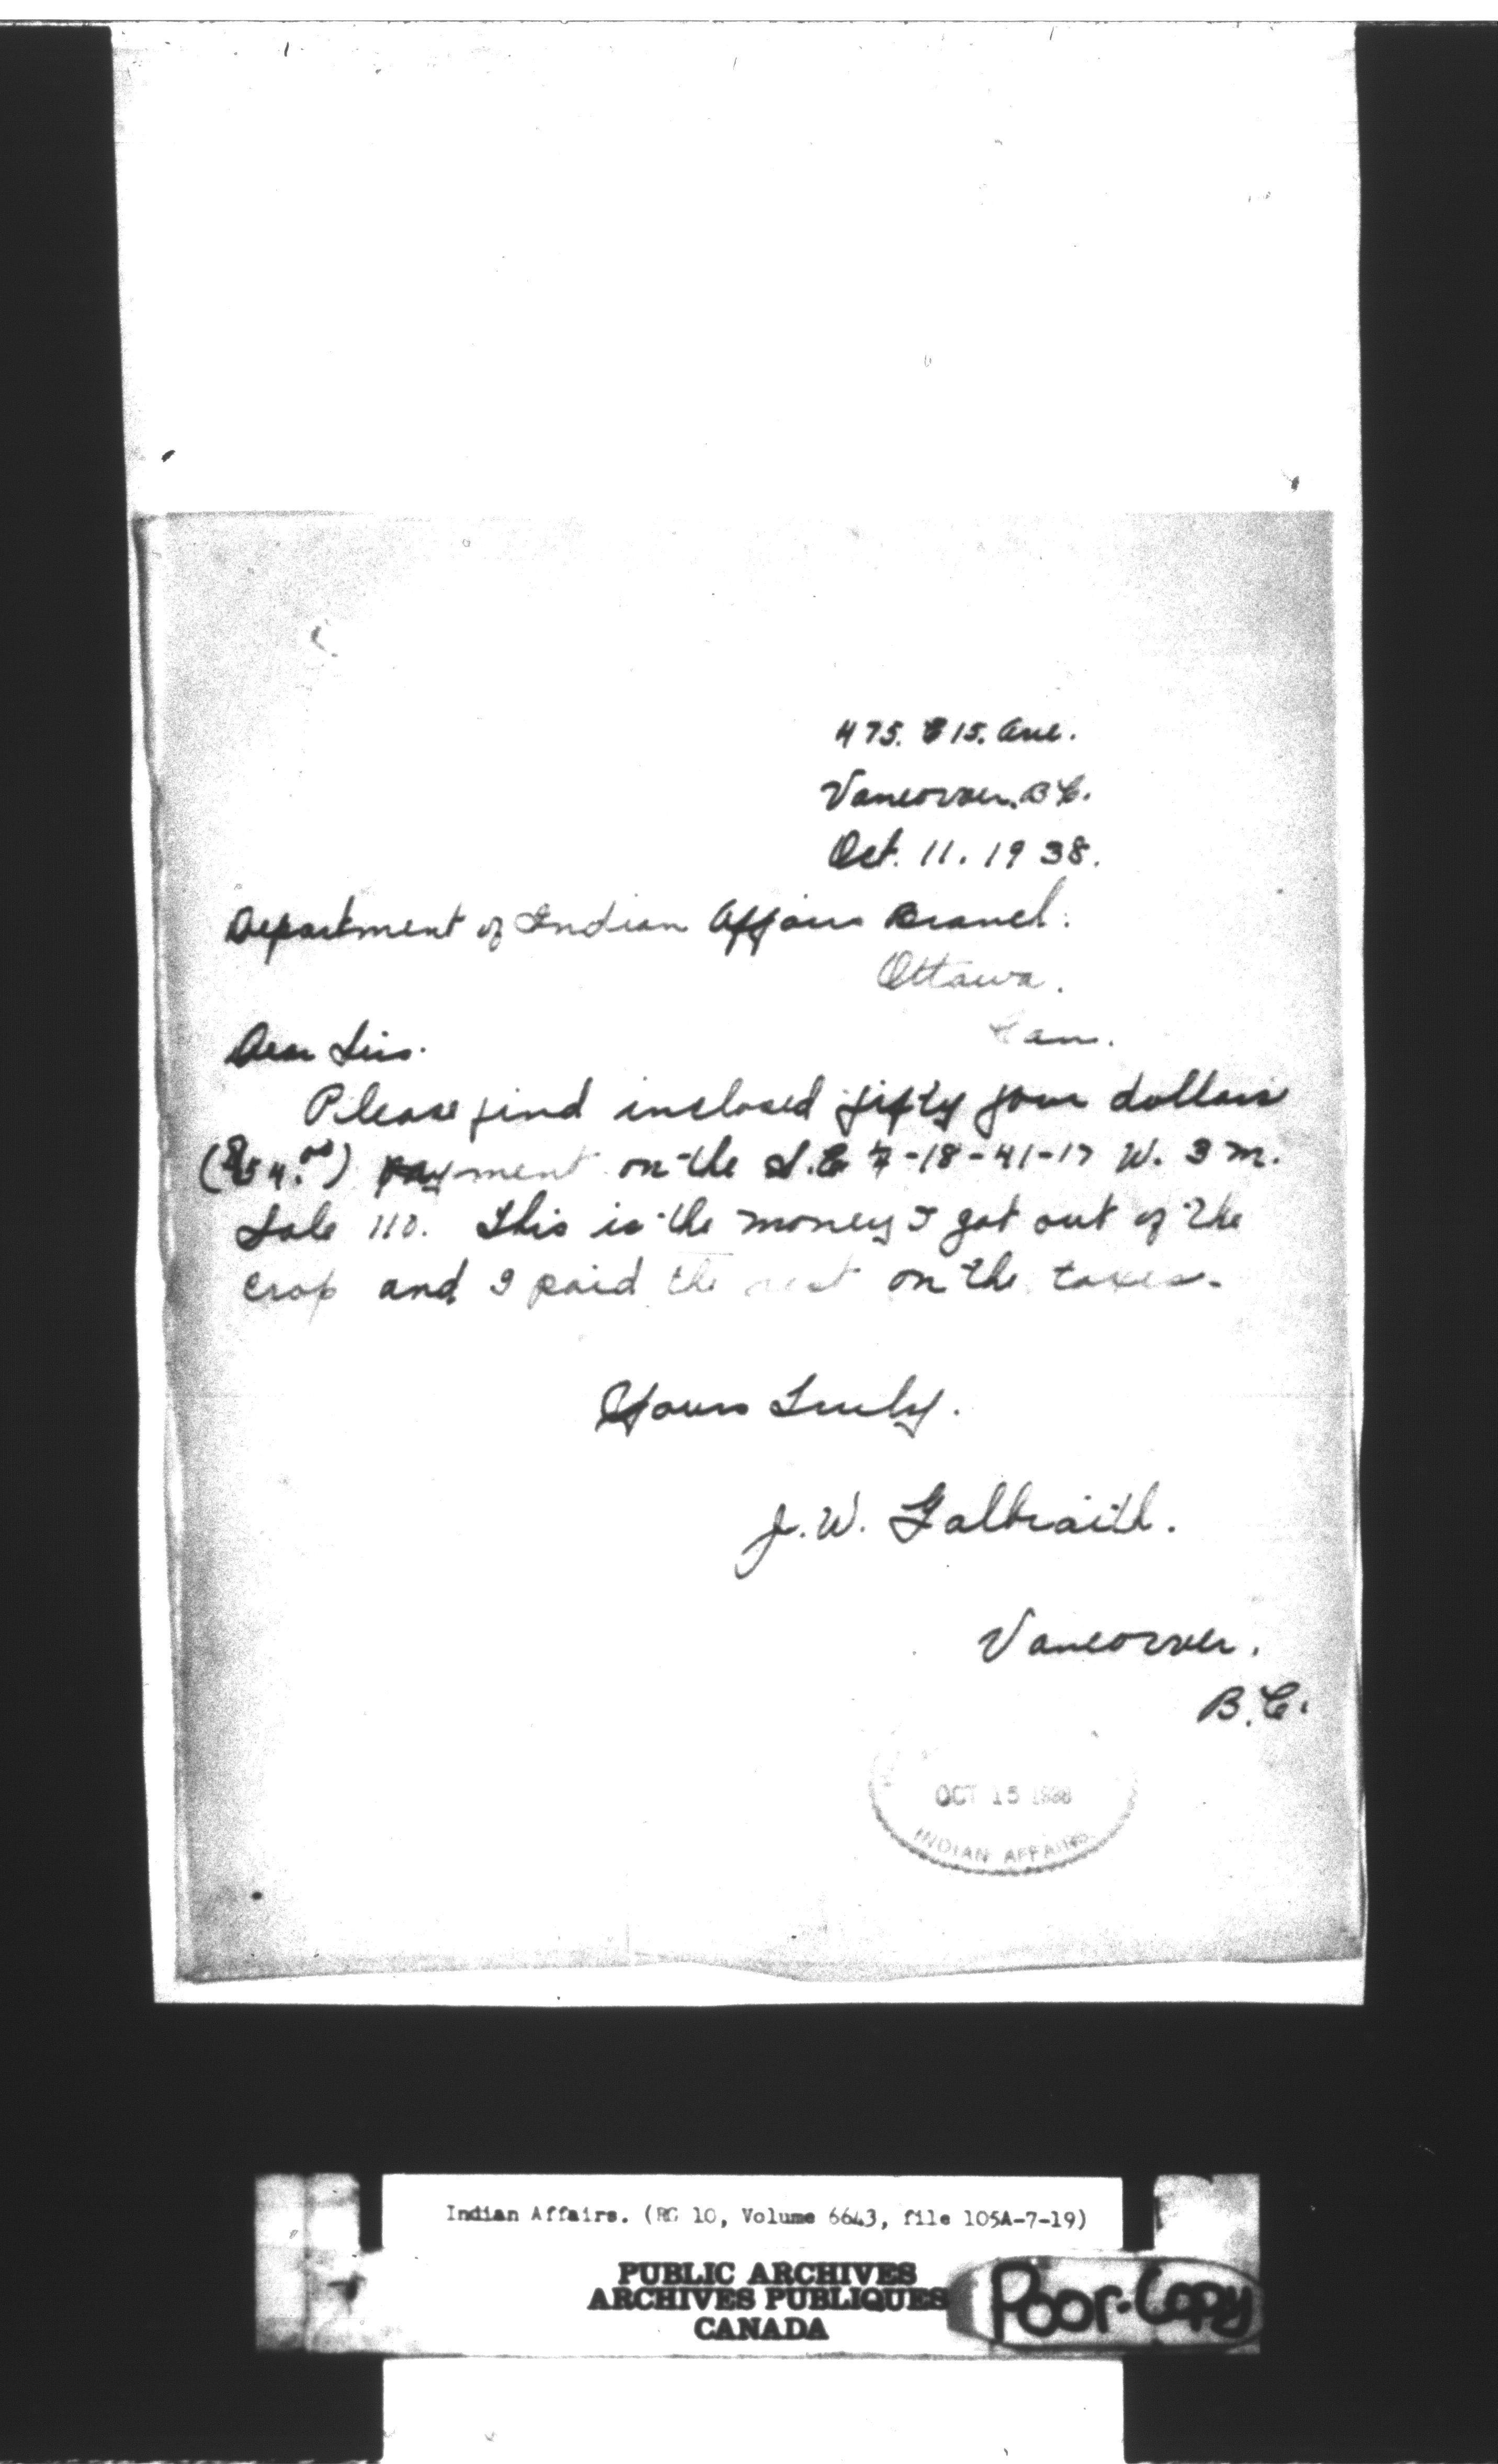 475. E 15. Ave.
Vancouver. B.C.
Oct. 11. 1938.
Department of Indian Affairs Branch.
Ottawa.
Can.
Dear Sirs.
Please find inclosed fifty four dollars
($54.00) payment on the S.E 7-18-41-17 W. 3 M.
Sale 110. This is the money I got out of the
crop and I paid the rest on the taxes.
Yours Truly.
J. W. Galbraith.
Vancouver.
B.C.
OCT 15 1938
INDIAN AFFAIRS
Indian Affairs. (RG 10, Volume 6643, file 105A-7-19)
PUBLIC ARCHIVES
ARCHIVES PUBLIQUES
CANADA
Poor-Copy